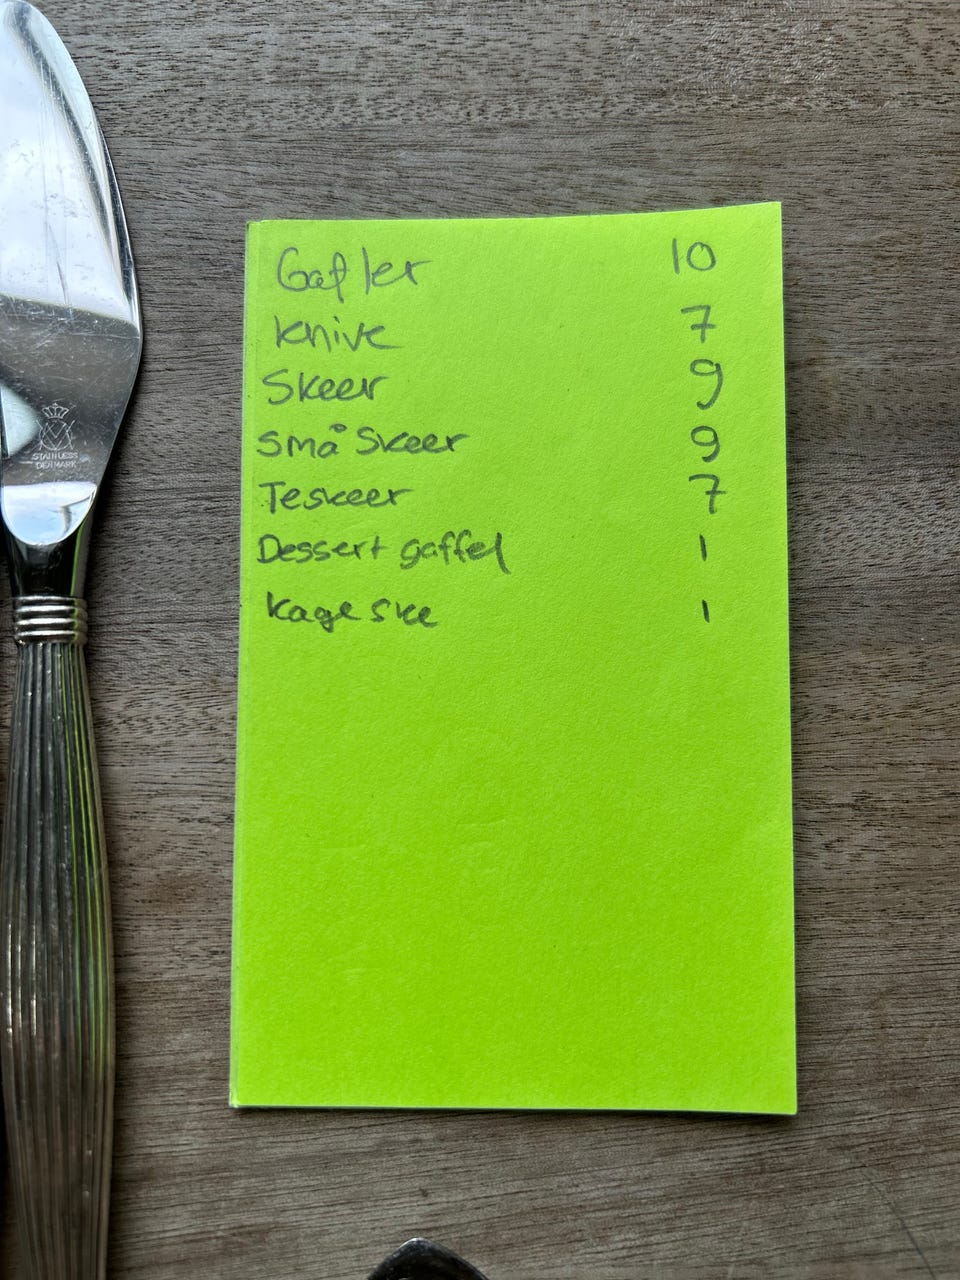 Gafler 10
knive 7
Skeer 9
små skeer 9
Teskeer 7
Dessert gaffel 1
kage ske 1
STAINLESS
DENMARK